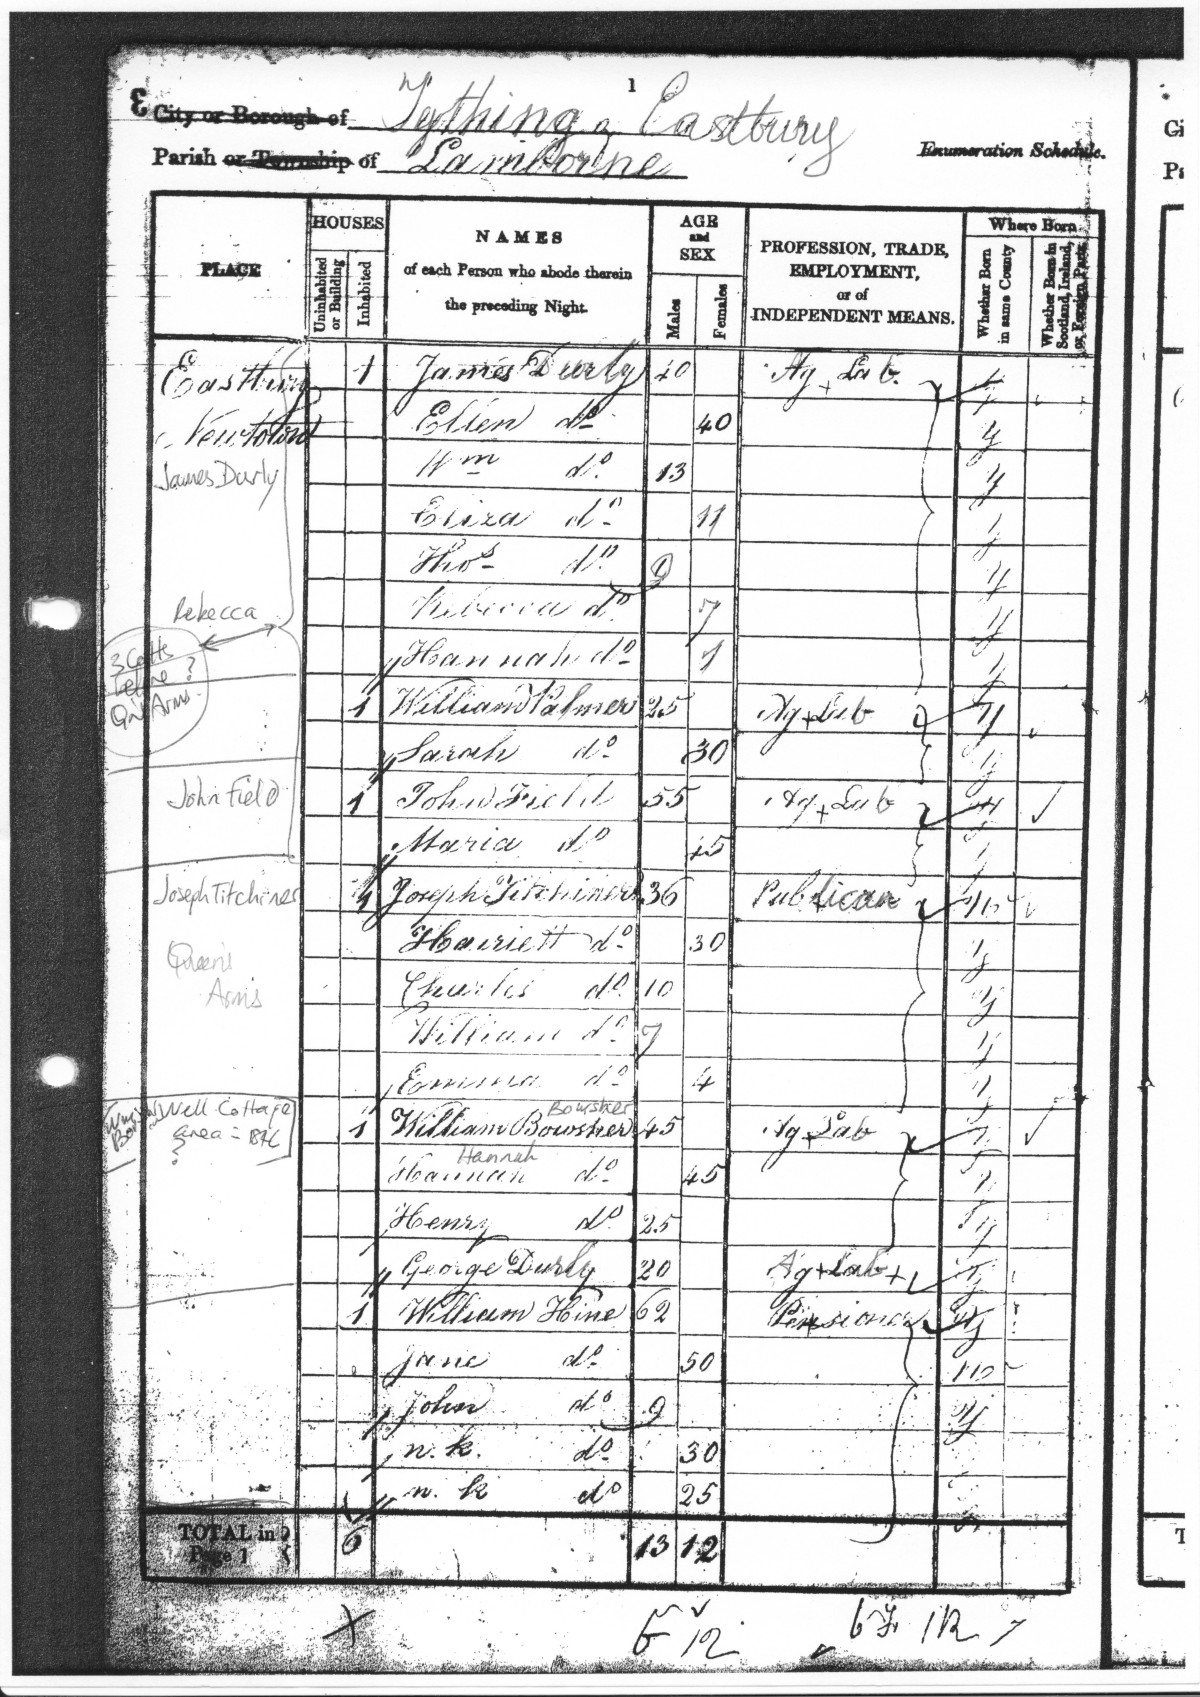 1
3 City or Borough of Tything of Eastbury
Parish or Township of Lamborne
Enumeration Schedule.
PLACE
HOUSES
Uninhabited or Building
Inhabited
NAMES
of each Person who abode therein
the preceding Night.
AGE
and
SEX
Males
Females
PROFESSION, TRADE,
EMPLOYMENT,
or of
INDEPENDENT MEANS.
Where Born
Whether Born in same County
Whether Born in Scotland, Ireland, or Foreign Parts.
Eastbury 1 James Durly 40 Ag Lab. y
Newtown Ellen do 40 y
James Durly Wm do 13 y
Eliza do 11 y
Thos do 9 y
Rebecca Rebecca do 7 y
Hannah do 1 y
3 Cotts
before ?
Qn's Arms
1 William Palmer 25 Ag Lab y
Sarah do 30 y
John Field 1 John Field 55 Ag Lab y
Maria do 45 y
Joseph Titchiner 1 Joseph Titchiner 36 Publican no
Harriett do 30 y
Queen's
Arms
Charles do 10 y
William do 7 y
Emma do 4 y
Well Cottage
area = B4C
?
Bowsher
1 William Bowsher 45 Ag Lab y
Hannah
Hannah do 45 y
Henry do 25 y
George Durly 20 Ag Lab y
1 William Hine 62 Pensioner y
Jane do 50 no
John do 9 y
n. k. do 30
n. k do 25
TOTAL in
Page 1 6 13 12
12